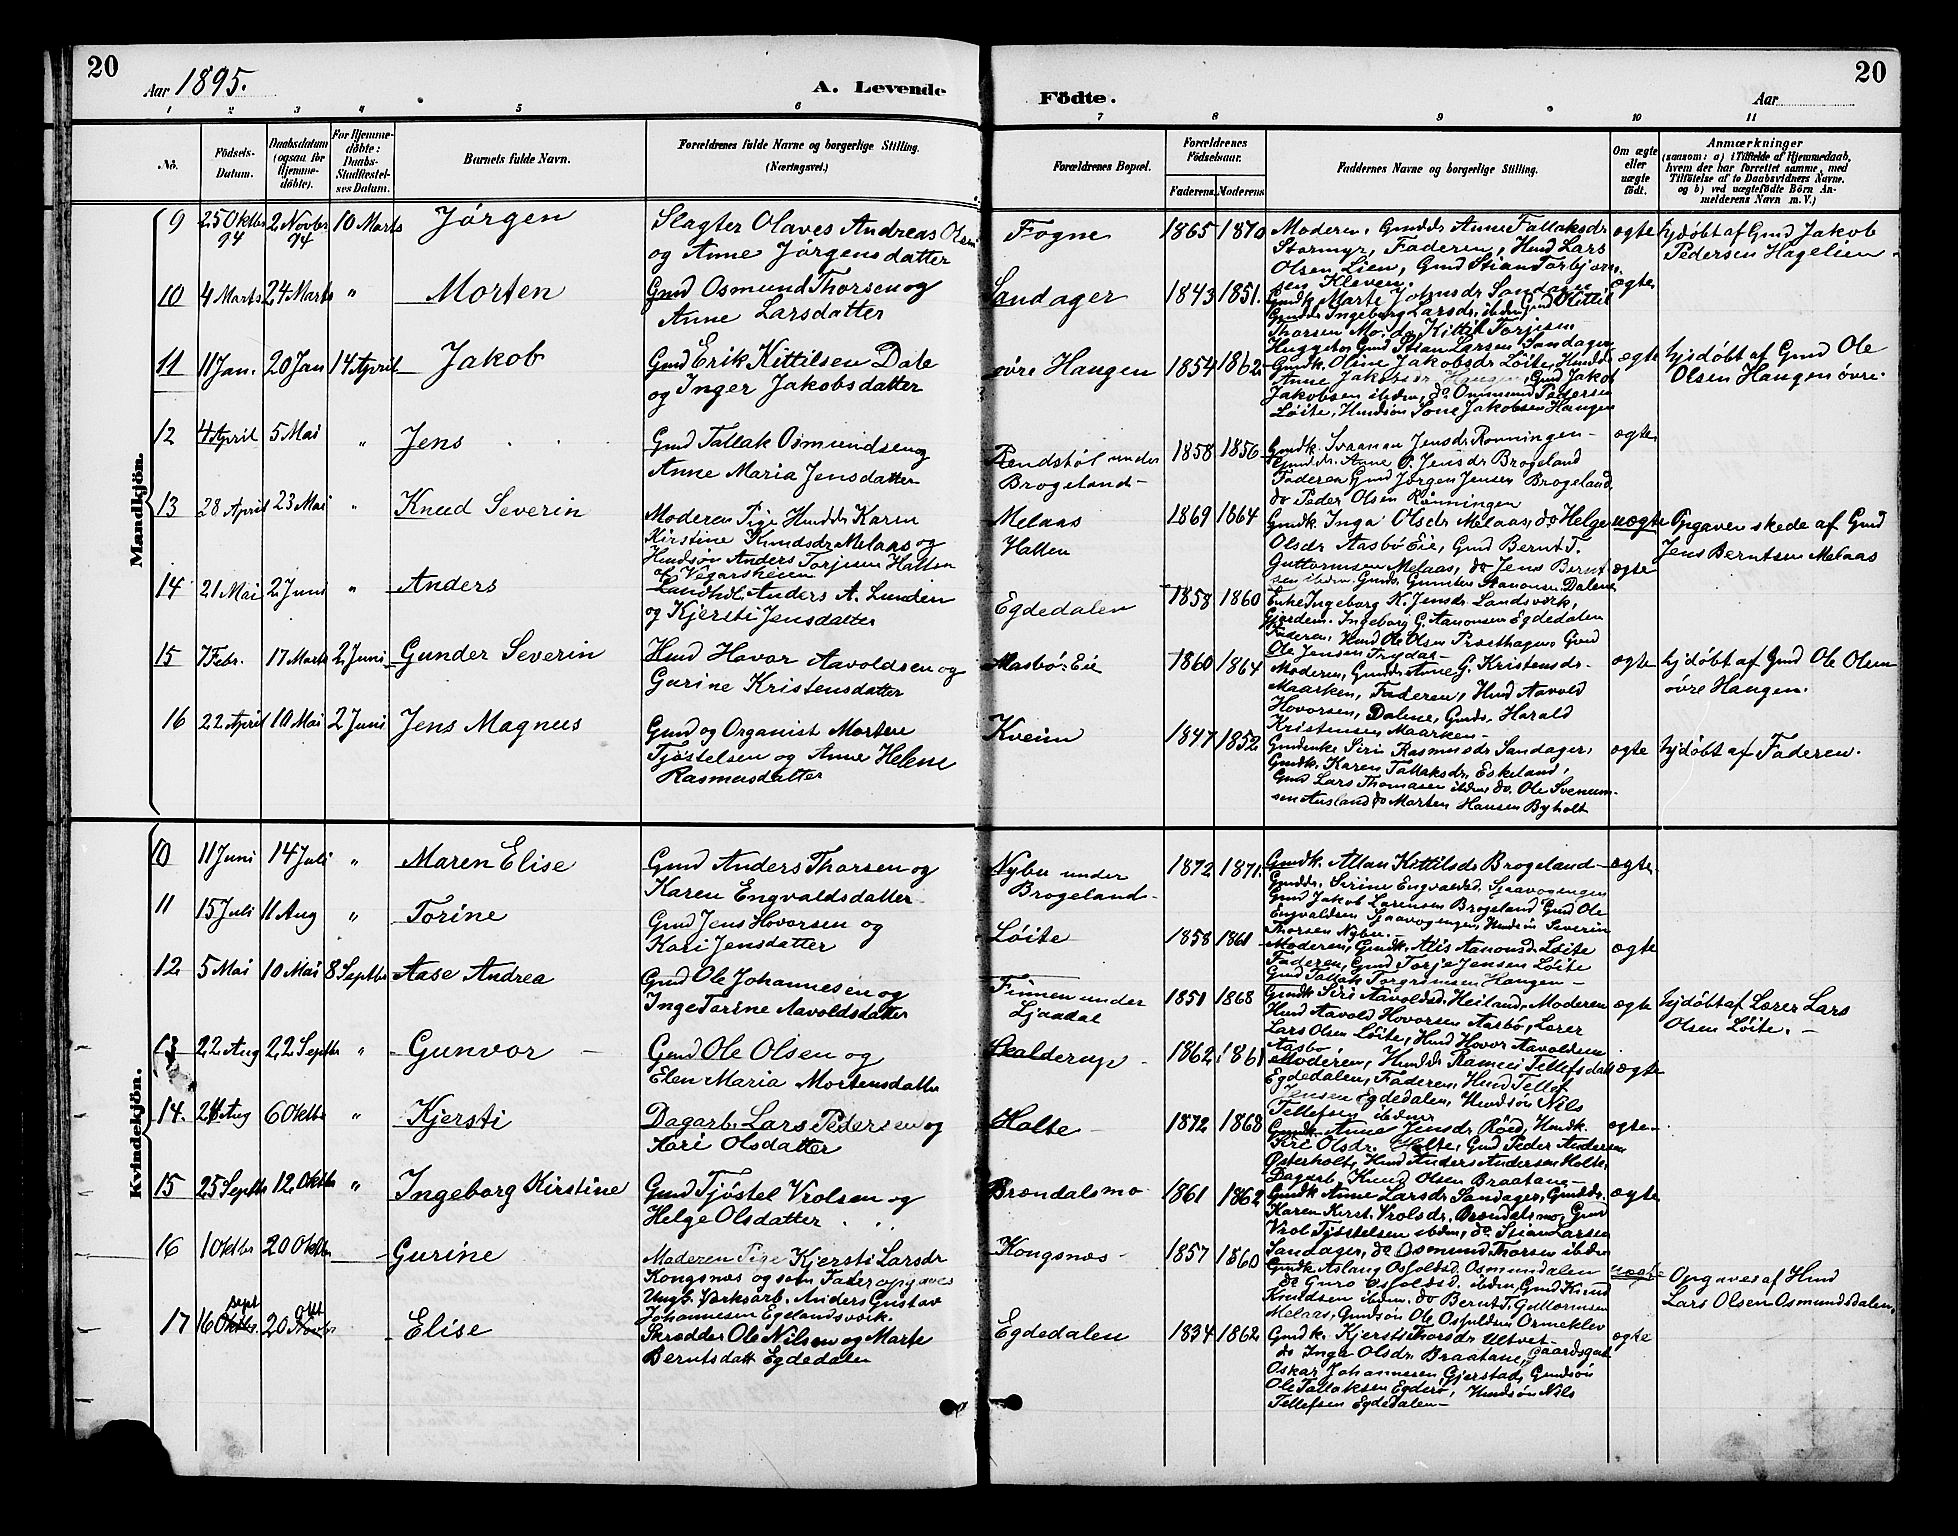 20
Aar 1895.
A. Levende
Födte.
Aar
20
1 2 3 4 5 6 7 8 9 10 11
No.
Födsels-Datum.
Daabsdatum (ogsaa for Hjemme-döbte).
For Hjemme-döbte: Daabs-Stadfæstel-ses Datum.
Barnets fulde Navn.
Forældrenes fulde Navne og borgerlige Stilling. (Næringsvei.)
Forældrenes Bopæl.
Forældrenes Födselsaar.
Faderens. Moderens.
Faddernes Navne og borgerlige Stilling.
Om ægte eller uægte födt.
Anmærkninger
(saasom: a) i Tilfælde af Hjemmedaab, hvem der har forrettet samme, med Tilföielse af to Daabsvidners Navne, og b) ved uægtefödte Börn An-melderens Navn m. V.)
Mandkjön.
9 25 Oktbr 94 2 Novbr 94 10 Marts Jørgen
Slagter Olaves Andreas Olsen
og Anne Jørgensdatter
Fogne 1865 1870
Moderen, Gmdds Anne Tallaksdr
Stormyr, Faderen, Hmd Lars
Olsen Lien, Gmd Stian Torbjørn-
sen Kleven.
ægte hjdøbt af Gmd Jakob
Pedersen Hagelien.
10 4 Marts 24 Marts " Morten
Gmd Osmund Thorsen og
Anne Larsdatter
Sandager 1843 1851.
Gmdk. Marte Johnsdr Sandager,
Gmdds Ingeborg Larsdr. ibdem Gmd Kittil
Thorsen Mo, do Kittil Torjisen
Huggeto, Gmd Stian Larsen Sandager
ægte
11 11 Jan. 20 Jan 14 April Jakob
Gmd Erik Kittilsen Dale
og Inger Jakobsdatter
øvre Haugen 1854 1862
Gmdk. Oline Jakobsdr Løite, Hmdds
Anne Jakobsdr Haugen, Gmd Jakob
Jakobsen ibdem, do Ommund Pedersen
Løite, Hmdsøn Sone Jakobsen Haugen
ægte hjdøbt af Gmd Ole
Olsen Haugen øvre.
12 4 April 5 Mai " Jens
Gmd Tallak Osmundsen og
Anne Maria Jensdatter
Rendstøl under
Brogeland 1858 1856
Gmdk. Jensdr Rønningen
Gmd dr. Anne P. Jensdr Brogeland
Faderen Gmd Jørgen Jensen Brogeland
do Peder Olsen Rønningen
ægte
13 28 April 23 Mai " Knud Severin
Moderen Pige Hmdds Karen
Kirstine Knudsdr Melaas og
Hmdsøn Anders Torjisen Hatten
af Vegarsheien
Melaas
Hatten 1869 1864
Gmdk. Inga Olsdr Melaas, do Helge
Olsdr Aasbø Eie, Gmd Bernt T.
Guttormsen Melaas, do Jens Bernt
sen ibdem
uægte Opgaver skede af Gmd
Jens Berntsen Melaas
14 21 Mai 2 Juni " Anders
Landhdl. Anders A. Lunden
og Kjersti Jensdatter
Egdedalen 1858 1860
Gmds. Gunder Aanonsen Dalene
Enke Ingeborg K. Jensdr Landsverk,
Gjordem. Ingeborg G. Aanonsen Egdedalen
Faderen, Hmd Ole Olsen Præsthagen, Gmd
Ole Jensen Trydal
ægte
15 7 Febr. 17 Marts 2 Juni Gunder Severin
Hmd Havor Aavoldsen og
Gurine Kristensdatter
Aasbø Eie 1860 1864
Moderen, Gmdds Anne G. Kristensdr
Maarken, Faderen, Hmd Aavold
Hovorsen, Dalene, Gmds. Harald
Kristensen Maarken
ægte hjdøbt af Gmd Ole Olsen
øvre Haugen.
16 22 April 10 Mai 2 Juni Jens Magnus
Gmd og Organist Morten
Tjøstelsen og Anne Helene
Rasmusdatter
Kveim 1847 1852
Gmdenke Siri Rasmusdr Sandager,
Gmdk. Karen Tallaksdr, Eskeland,
Gmd Lars Thomasen ibdem, do. Ole Svenum-
sen Ausland do Morten Hansen Byholt
ægte hjdøbt af Faderen.
Kvindekjön.
10 11 Juni 14 Juli " Maren Elise
Gmd Anders Thorsen og
Karen Engvaldsdatter
Nybu under
Brogeland 1872 1871
Gmdk. Allau Kittilsdr Brogeland
Gmdds. Sirine Engvaldsd. Sjaavogengen
Gmd Jakob Larensen Brogeland Gmd Ole
Engvaldsen Sjaavogengen, Hmdsøn Severin
Thorsen Nybu.
ægte
11 15 Juli 11 Aug " Torine
Gmd Jens Hovorsen og
Kari Jensdatter
Løite 1858 1861
Moderen, Gmdk. Alis Aanonsd. Løite
Faderen, Gmd Torje Jensen Løite
Gmd Tallak Torgrimsen Haugen
ægte
12 5 Mai 10 Mai 8 Septbr Aase Andrea
Gmd Ole Johannesen og
Inge Torine Aavoldsdatter
Finnen under
Ljaadal 1851 1868
Gmdk Siri Aavoldsd. Heiland, Moderen
Hmd Aavold Hovorsen Aasbø, Lærer
Lars Olsen Løite, Hmd Hovor Aavoldsen
Aasbo
ægte hjdøbt af Lærer Lars
Olsen Løite.
13 22 Aug 22 Septbr " Gunvor
Gmd Ole Olsen og
Elen Maria Mortensdatter
Skalderup 1862 1861
Moderen, Hmdds Ramei Tellefsdatt
Egdedalen, Faderen, Hmd Tellef
Jensen Egdedalen, Hmdsøn Nils
Tellefsen ibdem
ægte
14. 24 Aug 6 Oktbr " Kjersti
Dagarb. Lars Pedersen og
Kari Olsdatter
Holte 1872 1868
Gmdk Anne Jensdr Röed, Hmdk.
Kiri Olsdr. Holte, Gmd Peder Andersen
Østerholt, Hmd Anders Andersen Holte,
Dagarb. Knud Olsen Braatane
ægte
15 25 Septbr 12 Oktbr " Ingeborg Kirstine
Gmd Tjøstel Vrolsen og
Helge Olsdatter
Brændalsmo 1861 1862
Gmdk Anne Larsdr Sandager, Gmdds.
Karen Kirst. Vrolsdr. Brændalsmo, Gmd
Vrol Tjøstelsen ibdem, do Stian Larsen
Sandager, do Osmund Thorsen ibdem
ægte
16 1 Oktbr 20 Oktbr Gurine
Moderen Pige Kjersti Larsdr
Kongsnæs og som Fader opgaves
Ungk. Værksarb. Anders Gustav
Johannesen Egelandsværk.
Kongsnæs 1857 1860
Gmdk Aslaug Osfoldsd, Osmundalen
do Guro Osfoldsd. ibdem, Gmd Knud
Knudsen ibdem. do Bernt T. Guttormsen
Melaas, Gmdsøn Ole Osfoldsen Ormeklev
uægte Opgaves af Hmd
Lars Olsen Osmundsdalen
17 16 sept 20 oct Elise
Skrædder Ole Nilsen og Marte
Berntsdatt Egdedalen
Egdedalen 1834 1862
Gmdk. Kjersti Thorsdr Ultvet
do Inga Olsdr. Braatane, Gaardsgut
Oskar Johannesen Gjerstad, Gmdsøn
Ole Tallaksen Egderø, Hmdsøn Nils
Tellefsen Egdedalen
ægte